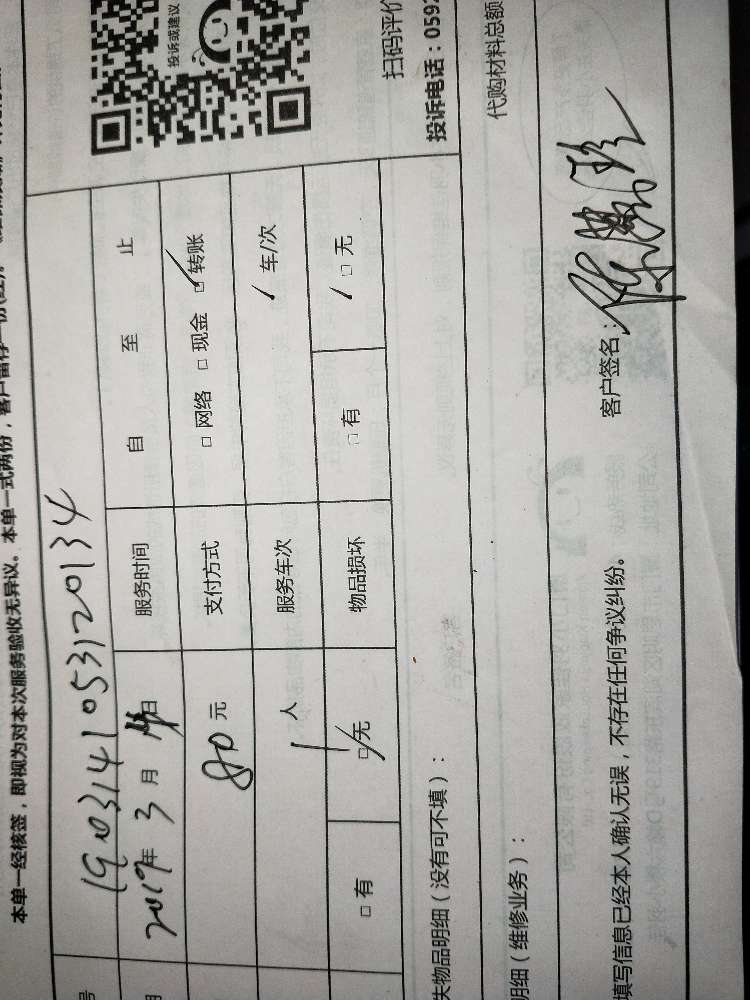 本单一经核签，即视为对本次服务验收无异议。本单一式两份，客户留存一份
号 1903141053120134
投诉或建议
2019年 3 月 14 日 服务时间 自 至 止
80 元 支付方式 □网络 □现金 □转账
扫码评价
1 人 服务车次 1 车/次
投诉电话：0592
□有 □无 物品损坏 □有 □无
失物品明细（没有可不填）：
代购材料总额
明细（维修业务）：
填写信息已经本人确认无误，不存在任何争议纠纷。 客户签名：